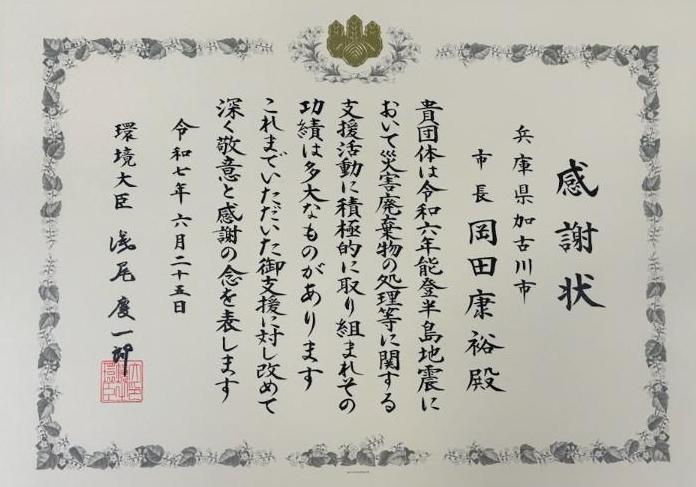 感謝状
兵庫県加古川市
市長 岡田康裕殿
貴団体は令和六年能登半島地震に
おいて災害廃棄物の処理等に関する
支援活動に積極的に取り組まれその
功績は多大なものがあります
これまでいただいた御支援に対し改めて
深く敬意と感謝の念を表します
令和七年六月二十五日
環境大臣 浅尾慶一郎